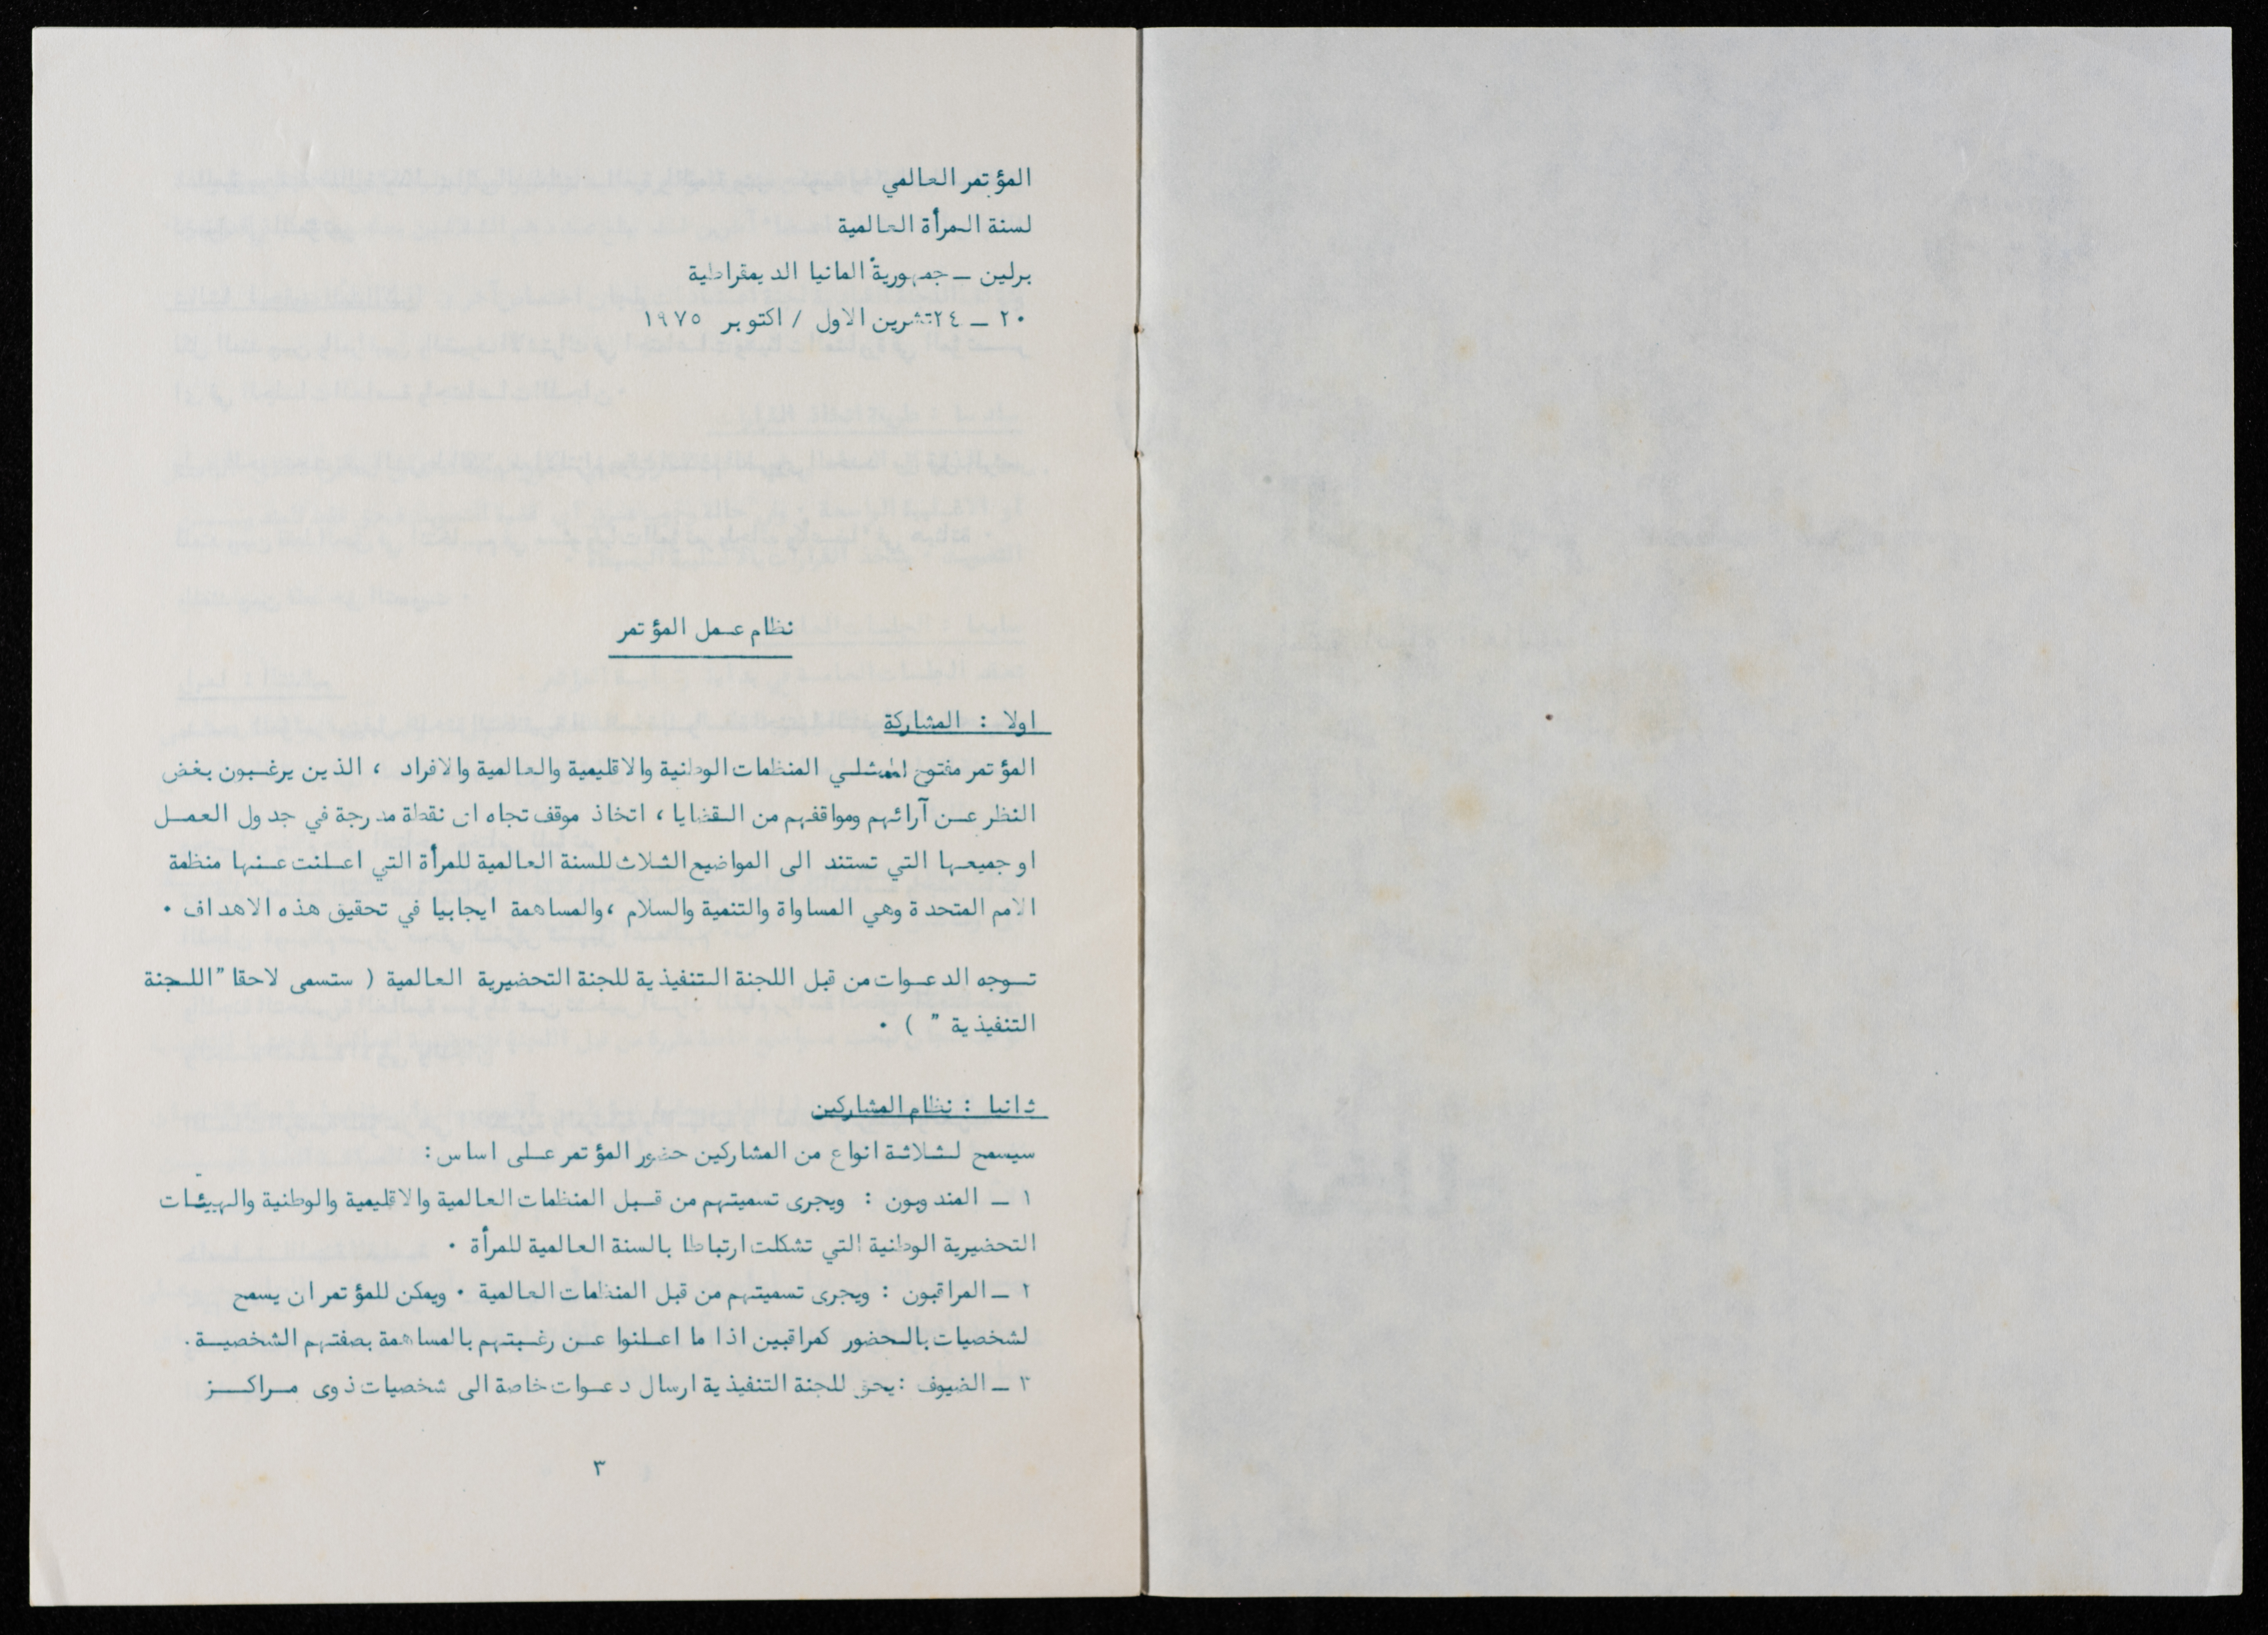 المؤتمر العالمي
لسنة المرأة العالمية
برلين ـ جمهورية المانيا الديمقراطية
٢٠ ـ ٢٤ تشرين الاول / اكتوبر ١٩٧٥
نظام عمل المؤتمر
اولا : المشاركة
المؤتمر مفتوح لممثلي المنظمات الوطنية والاقليمية والعالمية والافراد ، الذين يرغبون بغض
النظر عن آرائهم ومواقفهم من القضايا ، اتخاذ موقف تجاه اى نقطة مدرجة في جدول العمل
او جميعها التي تستند الى المواضيع الثلاث للسنة العالمية للمرأة التي اعلنت عنها منظمة
الامم المتحدة وهي المساواة والتنمية والسلام ، والمساهمة ايجابيا في تحقيق هذه الاهداف ٠
توجه الدعوات من قبل اللجنة التنفيذية للجنة التحضيرية العالمية ( ستسمى لاحقا "اللجنة
التنفيذية " ) ٠
ثانيا : نظام المشاركين
سيسمح لثلاثة انواع من المشاركين حضور المؤتمر على اساس :
١ ـ المندوبون : ويجرى تسميتهم من قبل المنظمات العالمية والاقليمية والوطنية والهيئات
التحضيرية الوطنية التي تشكلت ارتباطا بالسنة العالمية للمرأة ٠
٢ ـ المراقبون : ويجرى تسميتهم من قبل المنظمات العالمية ٠ ويمكن للمؤتمر ان يسمح
لشخصيات بالحضور كمراقبين اذا ما اعلنوا عن رغبتهم بالمساهمة بصفتهم الشخصية ٠
٣ ـ الضيوف : يحق للجنة التنفيذية ارسال دعوات خاصة الى شخصيات ذوى مراكز
٣